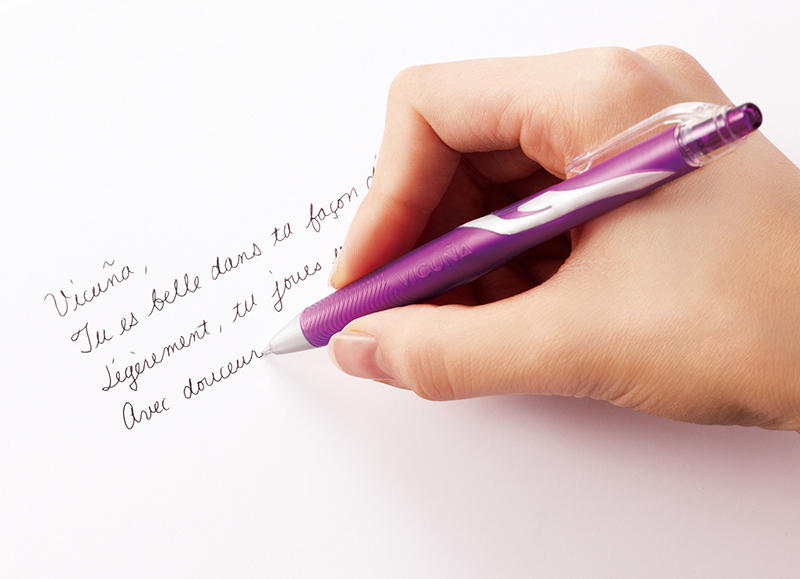 Vicuña,
Tu es belle dans ta façon
Légèrement, tu joues
Avec douceur
VICUÑA